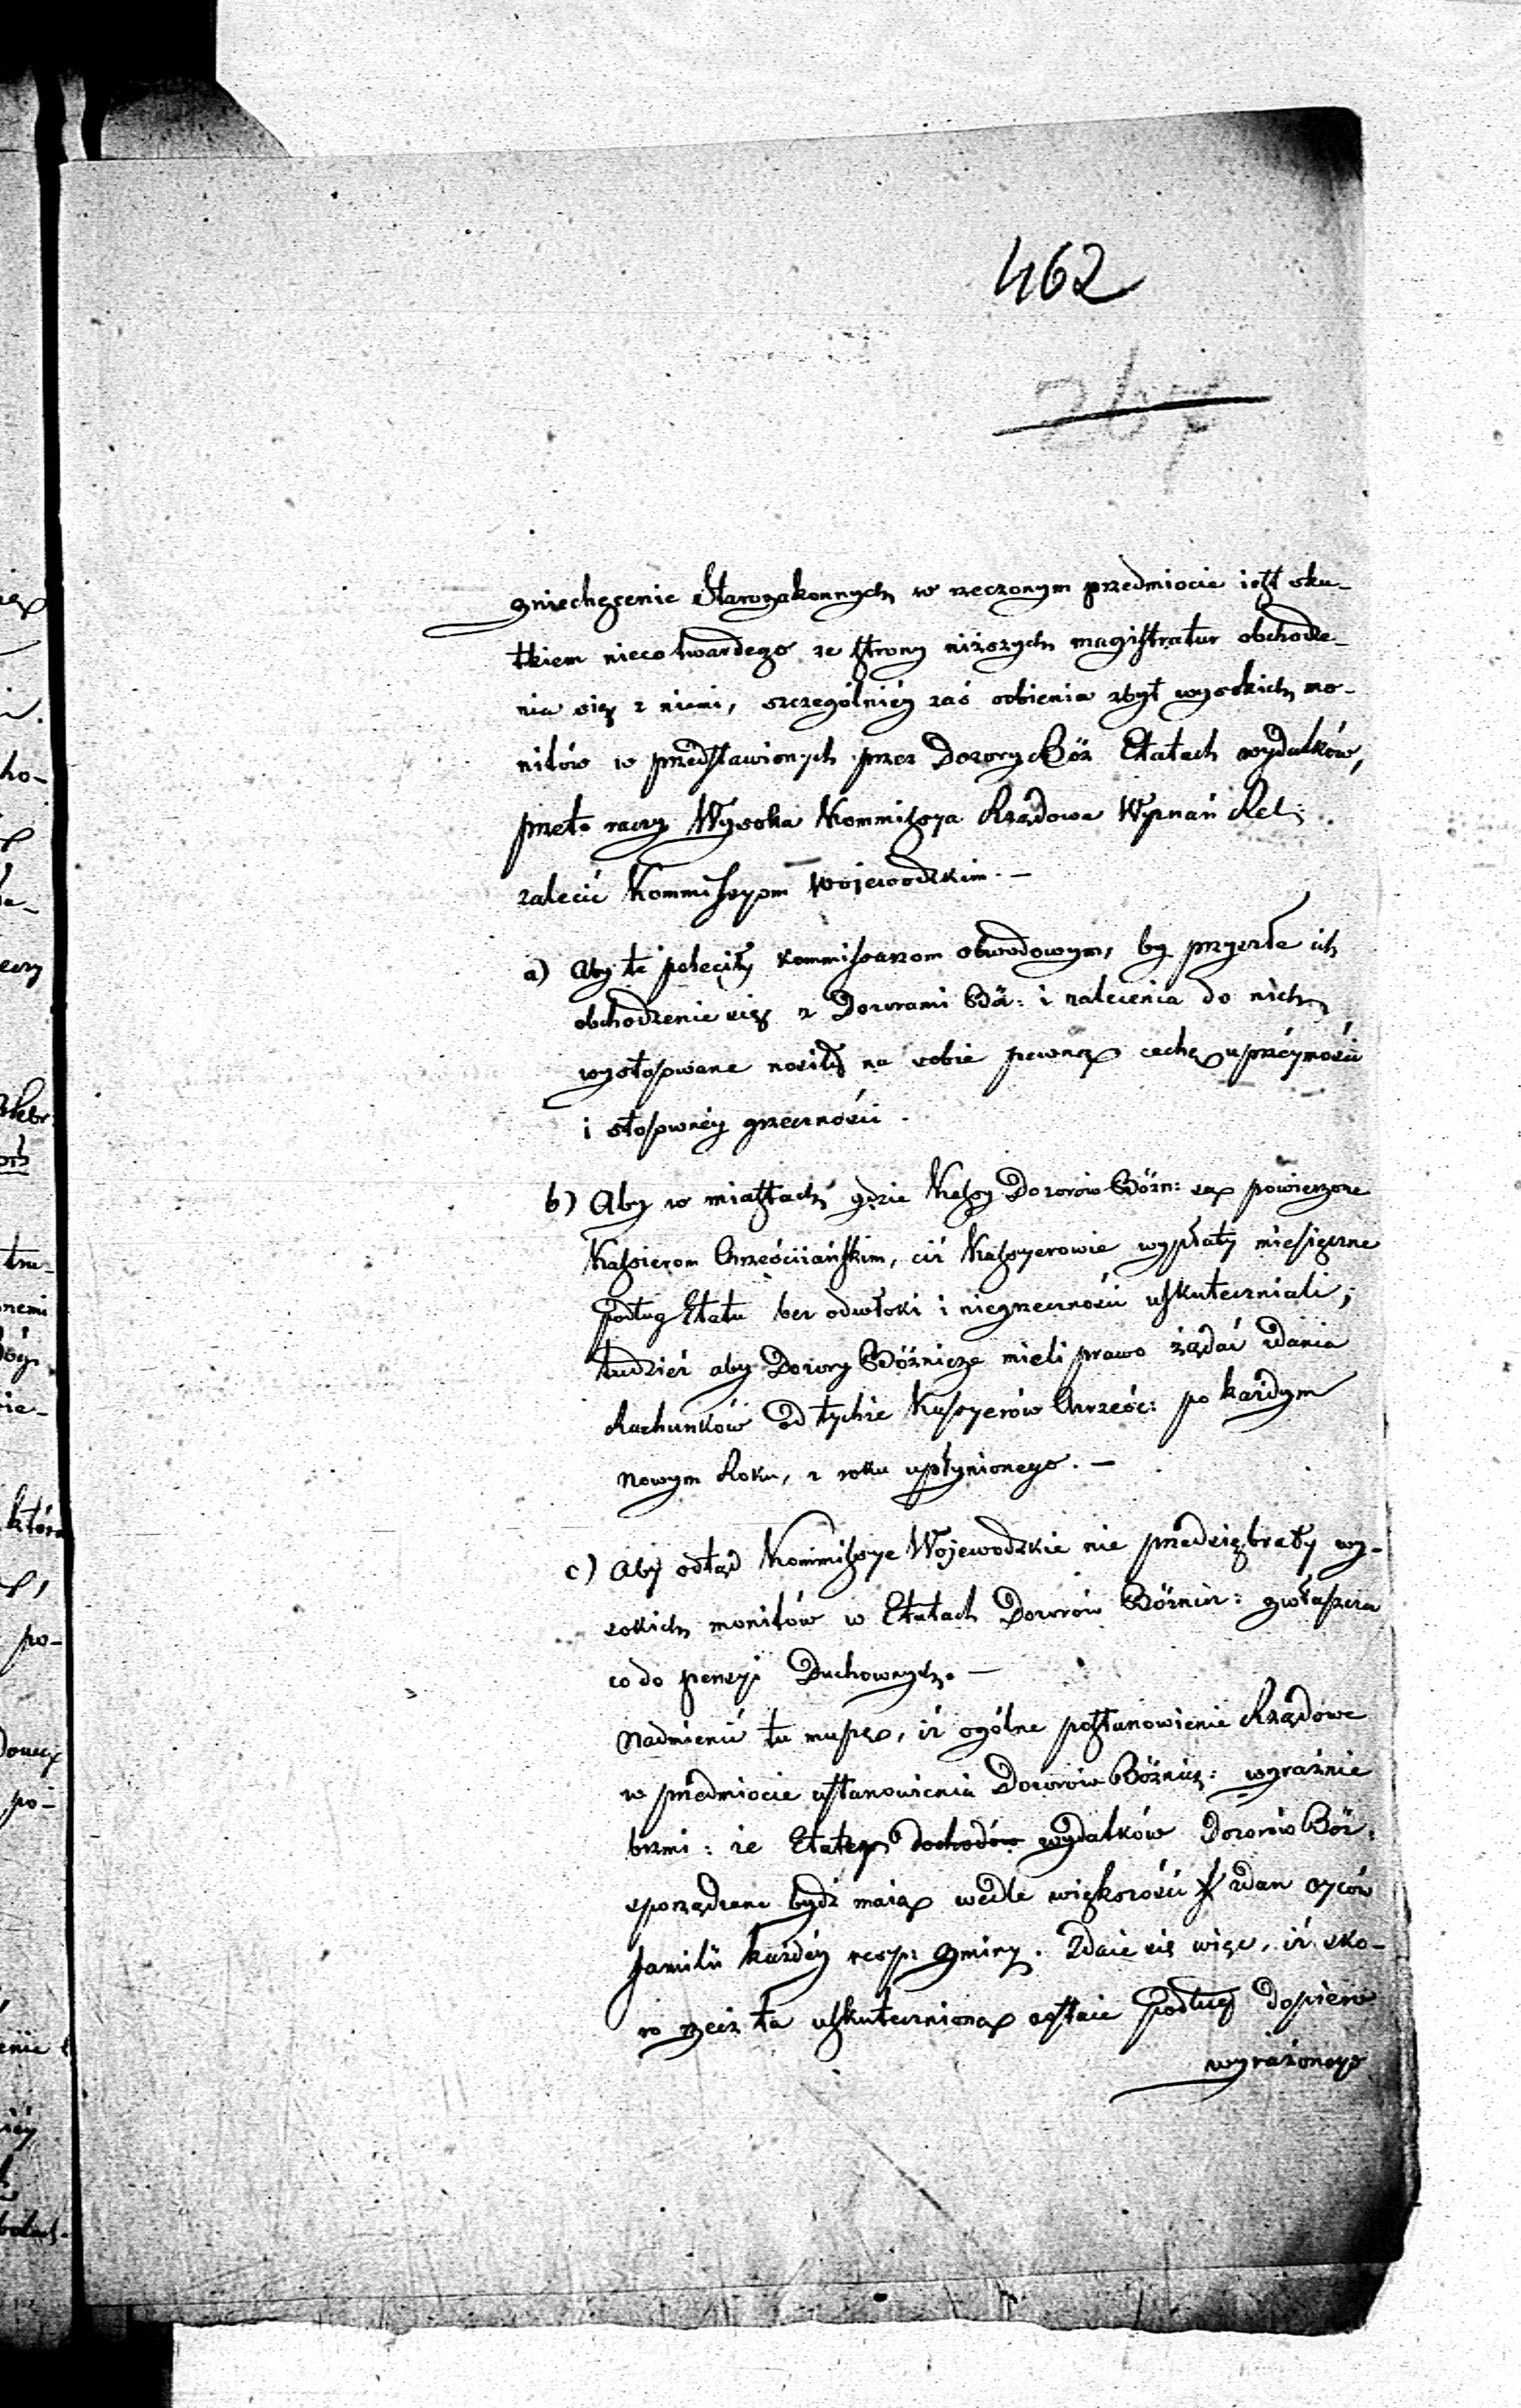 462
zniechęcenie Starozakonnych w rzeczonym przedmiocie iest sku-
tkiem nieco twardego ze strony niższych magistratur obchodze-
nia się z niemi, szczególniéy zaś robienia zbyt wysokich mo-
nitów w przedstawionych przez Dozory Bóż Etatach wydatków,
przeto raczy Wysoka Kommissya Rządowa Wyznań Rel:
zalecić Kommissyom Wojewodzkim. —
a) Aby te poleciły Kommissarzom obwodowym, by przyszłe ich
obchodzenie się z Dozorami Bóż: i zalecenia do nich
wystosowane nosiły na sobie pewną cechę uprzéymości
i stosownéy grzeczności.
b) Aby w miastach gdzie Kassy Dozorów Bóżn: są powierzone
Kassierom Chrześciiańskim, ciż Kassyerowie wypłaty miesięczne
podług Etatu bez odwłoki i niegrzeczności uskuteczniali;
tudzież aby Dozory Bóżnicze mieli prawo żądać zdania
Rachunków od tychże Kassyerów Chrześc: po każdym
Nowym Roku, z roku upłynionego. —
c) Aby odtąd Kommissye Wojewodzkie nie przedsiębrały wy-
sokich monitów w Etatach Dozorów Bóżnic: zwłaszcza
co do pensyi Duchownych. —
Nadmienić tu muszę, iż ogólne postanowienie Rządowe
w przedmiocie ustanowienia Dozorów Bóżnicz: wyraźnie
brzmi: że Etaty dochodów wydatków Dozorów Bóż:
sporządzane bydź maią wedle większości zdań oyców
familii każdéy resp: Gminy. Zdaie się więc, iż sko-
ro rzecz ta uskutecznioną zostaie podług dopiero
wyrażonego